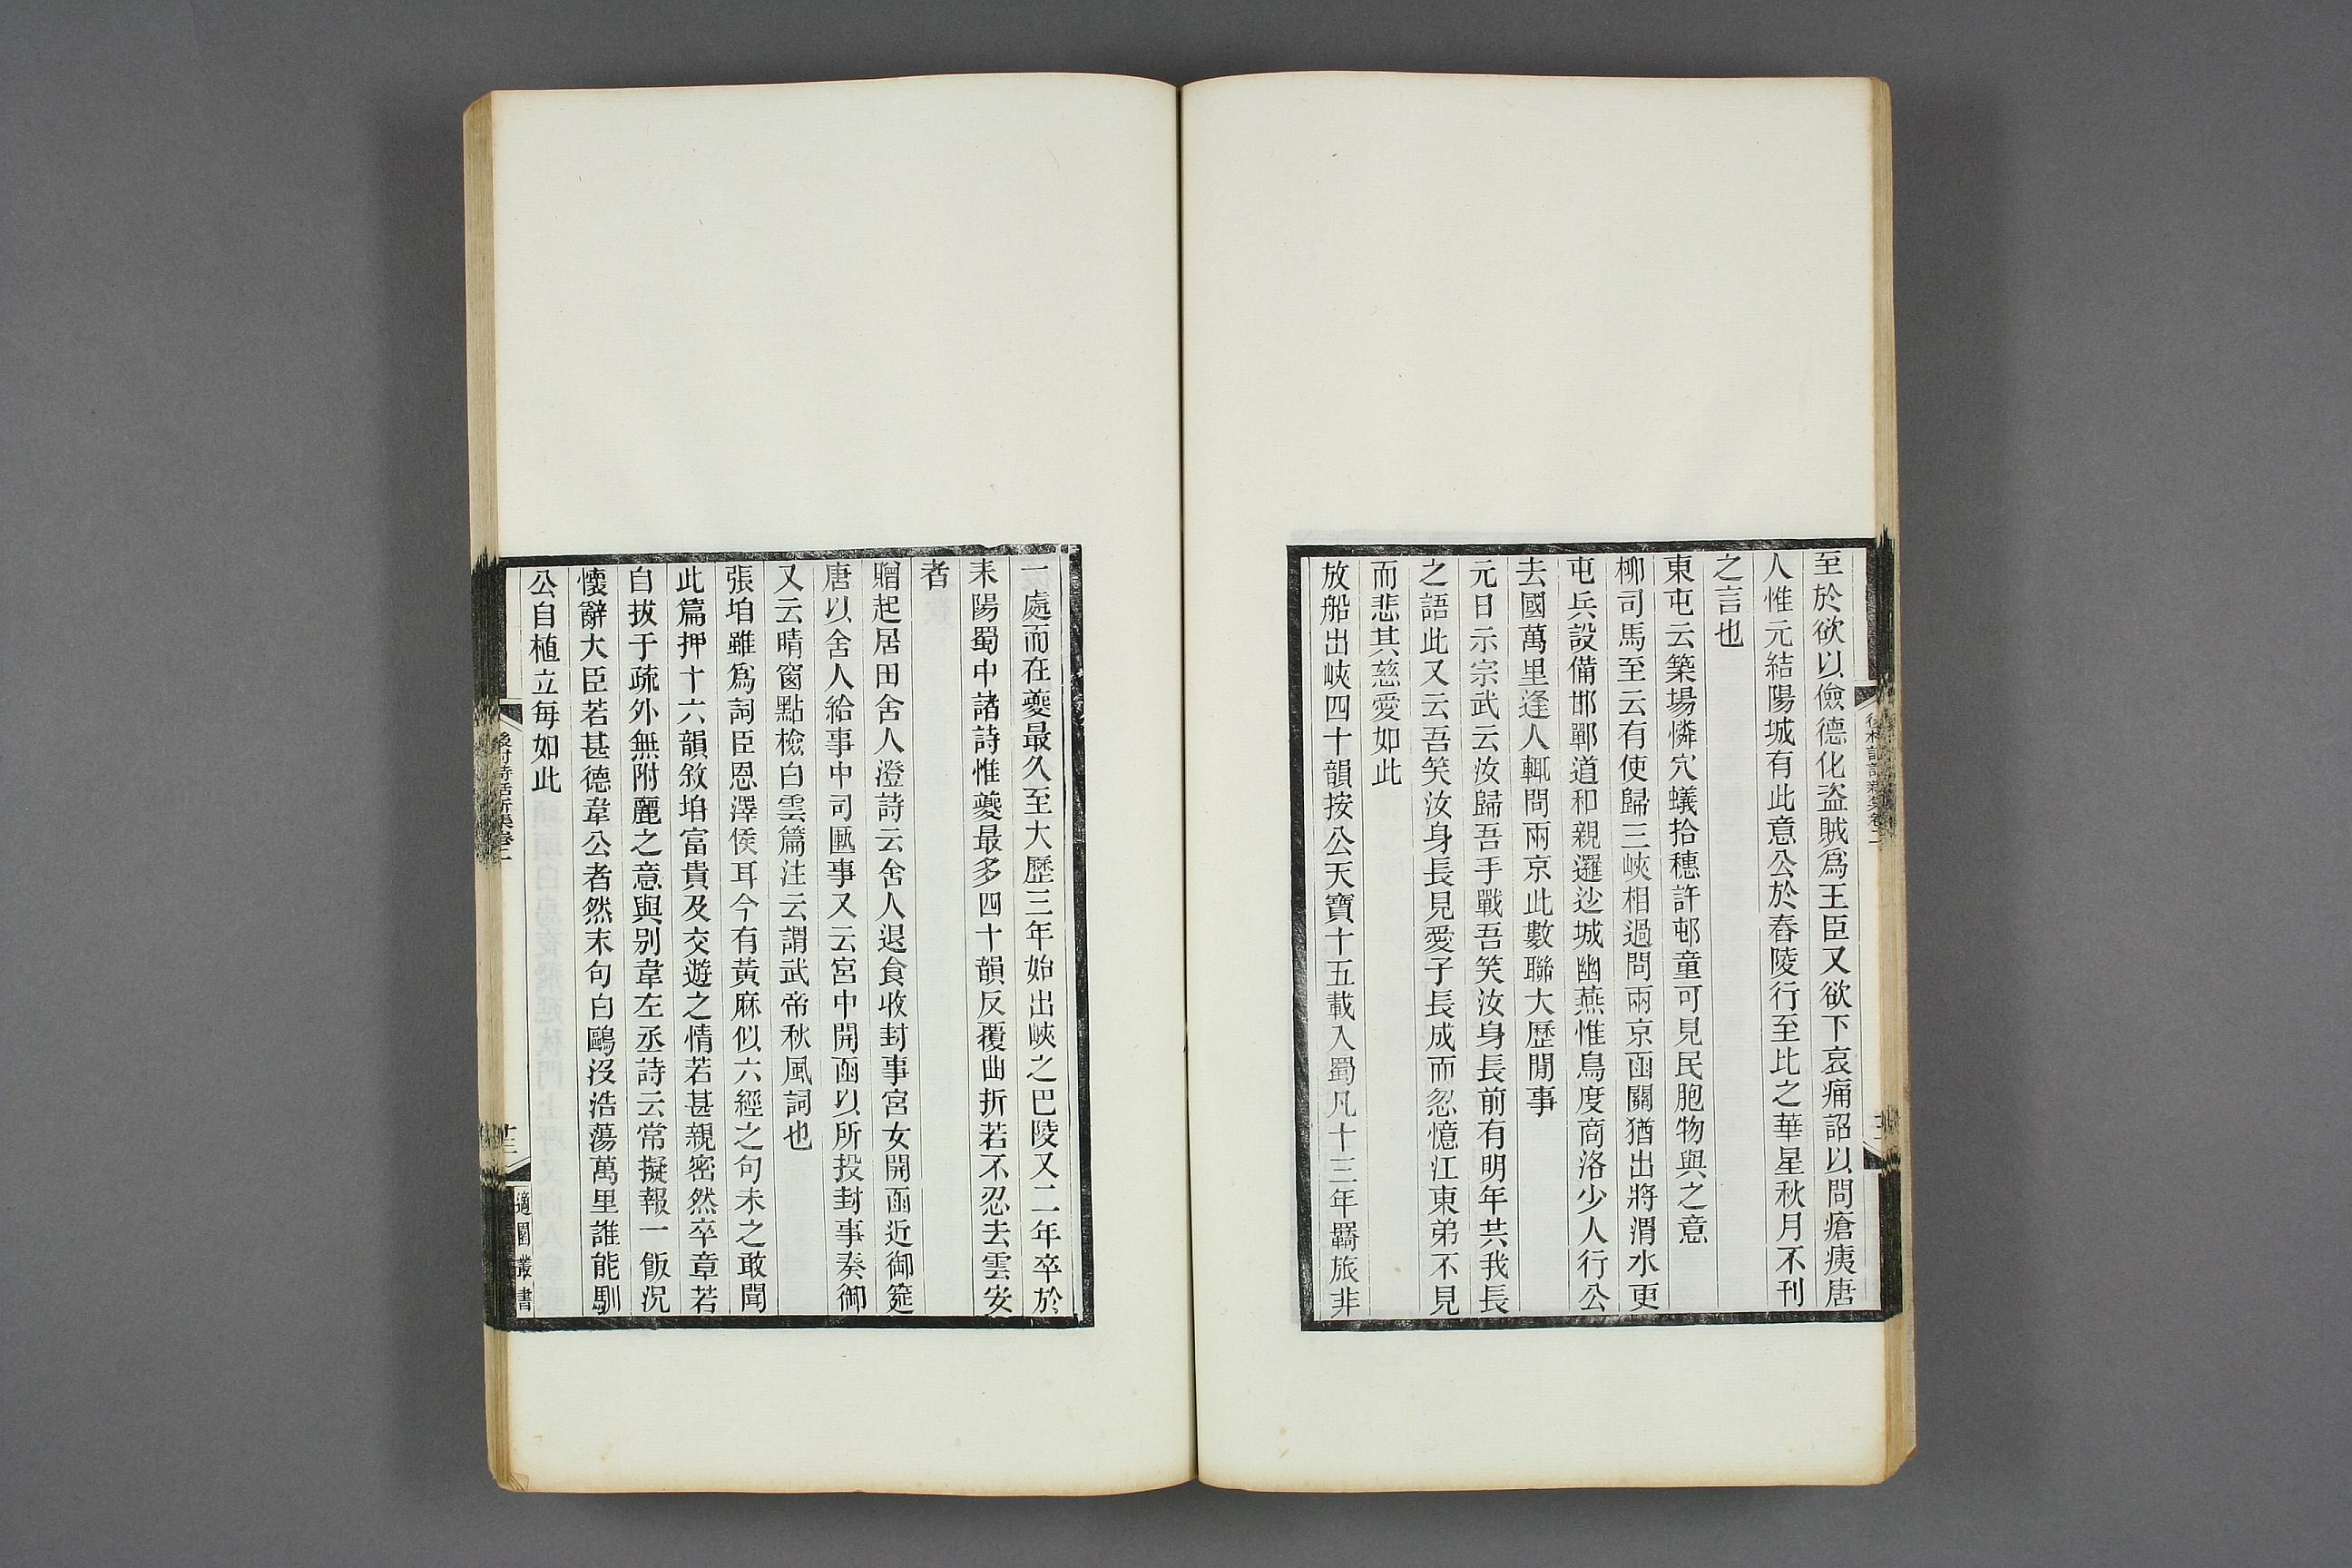 至於欲以儉德化盜賊爲王臣又欲下哀痛詔以問瘡痍唐
人惟元結陽城有此意公於舂陵行至比之華星秋月不刊
之言也
東屯云築場憐穴蟻拾穗許邨童可見民胞物與之意
柳司馬至云有使歸三峽相過問兩京函關猶出將渭水更
屯兵設備邯鄲道和親邏迯城幽燕惟鳥度商洛少人行公
去國萬里逢人輒問兩京此數聯大歷閒事
元日示宗武云汝歸吾手戰吾笑汝身長前有明年共我長
之語此又云吾笑汝身長見愛子長成而忽憶江東弟不見
而悲其慈愛如此
放船出峽四十韻按公天寶十五載入蜀凡十三年羇旅非
一處而在夔最久至大歷三年始出峽之巴陵又二年卒於
耒陽蜀中諸詩惟夔最多四十韻反覆曲折若不忍去雲安
者
贈起居田舍人澄詩云舍人退食收封事宮女開函近御筵
唐以舍人給事中司匭事又云宮中開函以所投封事奏御
又云晴窗點檢白雲篇注云謂武帝秋風詞也
張垍雖爲詞臣恩澤侯耳今有黃麻似六經之句未之敢聞
此篇押十六韻敘垍富貴及交遊之情若甚親密然卒章若
自拔于疏外無附麗之意與别韋左丞詩云常擬報一飯況
懷辭大臣若甚德韋公者然末句白鷗沒浩蕩萬里誰能馴
公自植立每如此
後村詩話新集卷二
十三
適園叢書